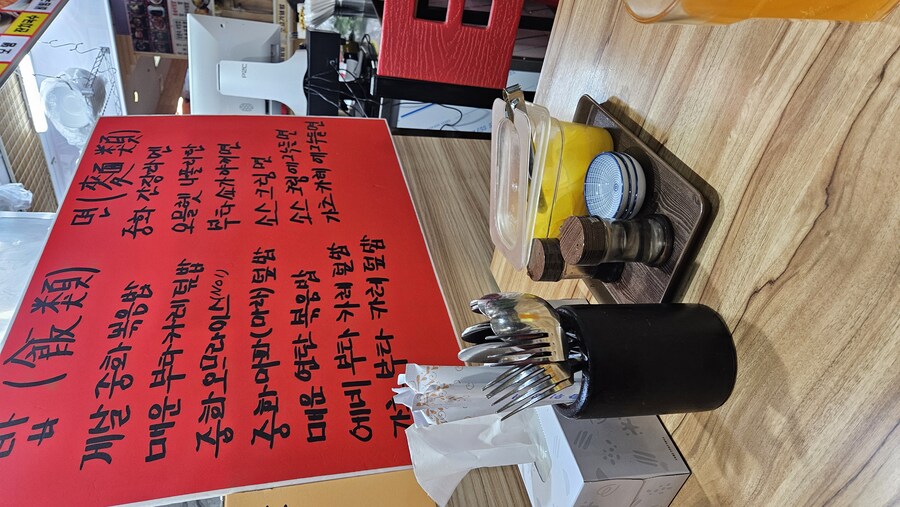 밥 (飯類)
게살 중화볶음밥
매운 부타카레덮밥
중화오므라이스(No1)
중화마화(마라)덮밥
매운 연탄 볶음밥
에비 부타 카레 덮밥
가츠 부타 카레 덮밥
면(麵類)
중화 간장라멘
오믈렛 나폴리탄
부타쇼가야끼면
소스크림면
소스크림에그누들면
가츠카레 에그누들면
잔치국수
PIZC